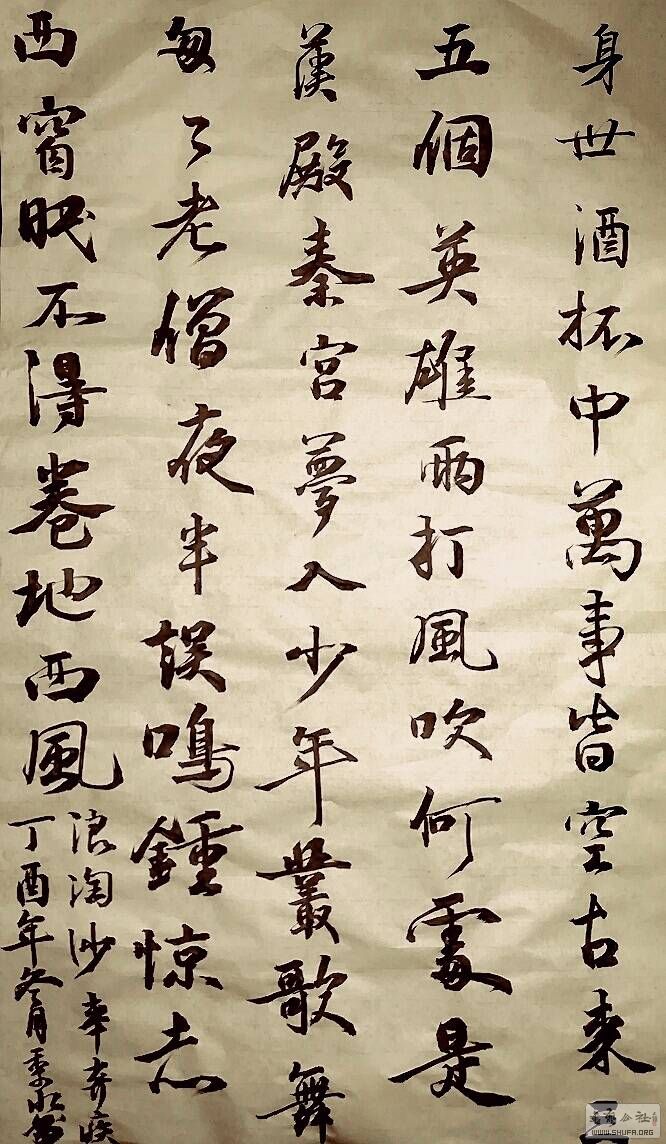 身世酒杯中萬事皆空古来三
五個英雄雨打風吹何處是
漢殿秦宮夢入少年叢歌舞
匆々老僧夜半誤鳴鍾惊起
西窗眠不得卷地西風
浪淘沙辛弃疾
丁酉年冬月
公社
WWW.SHUFA.ORG